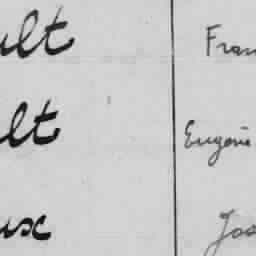 ult Fran
lt Eugénie
ux Jos